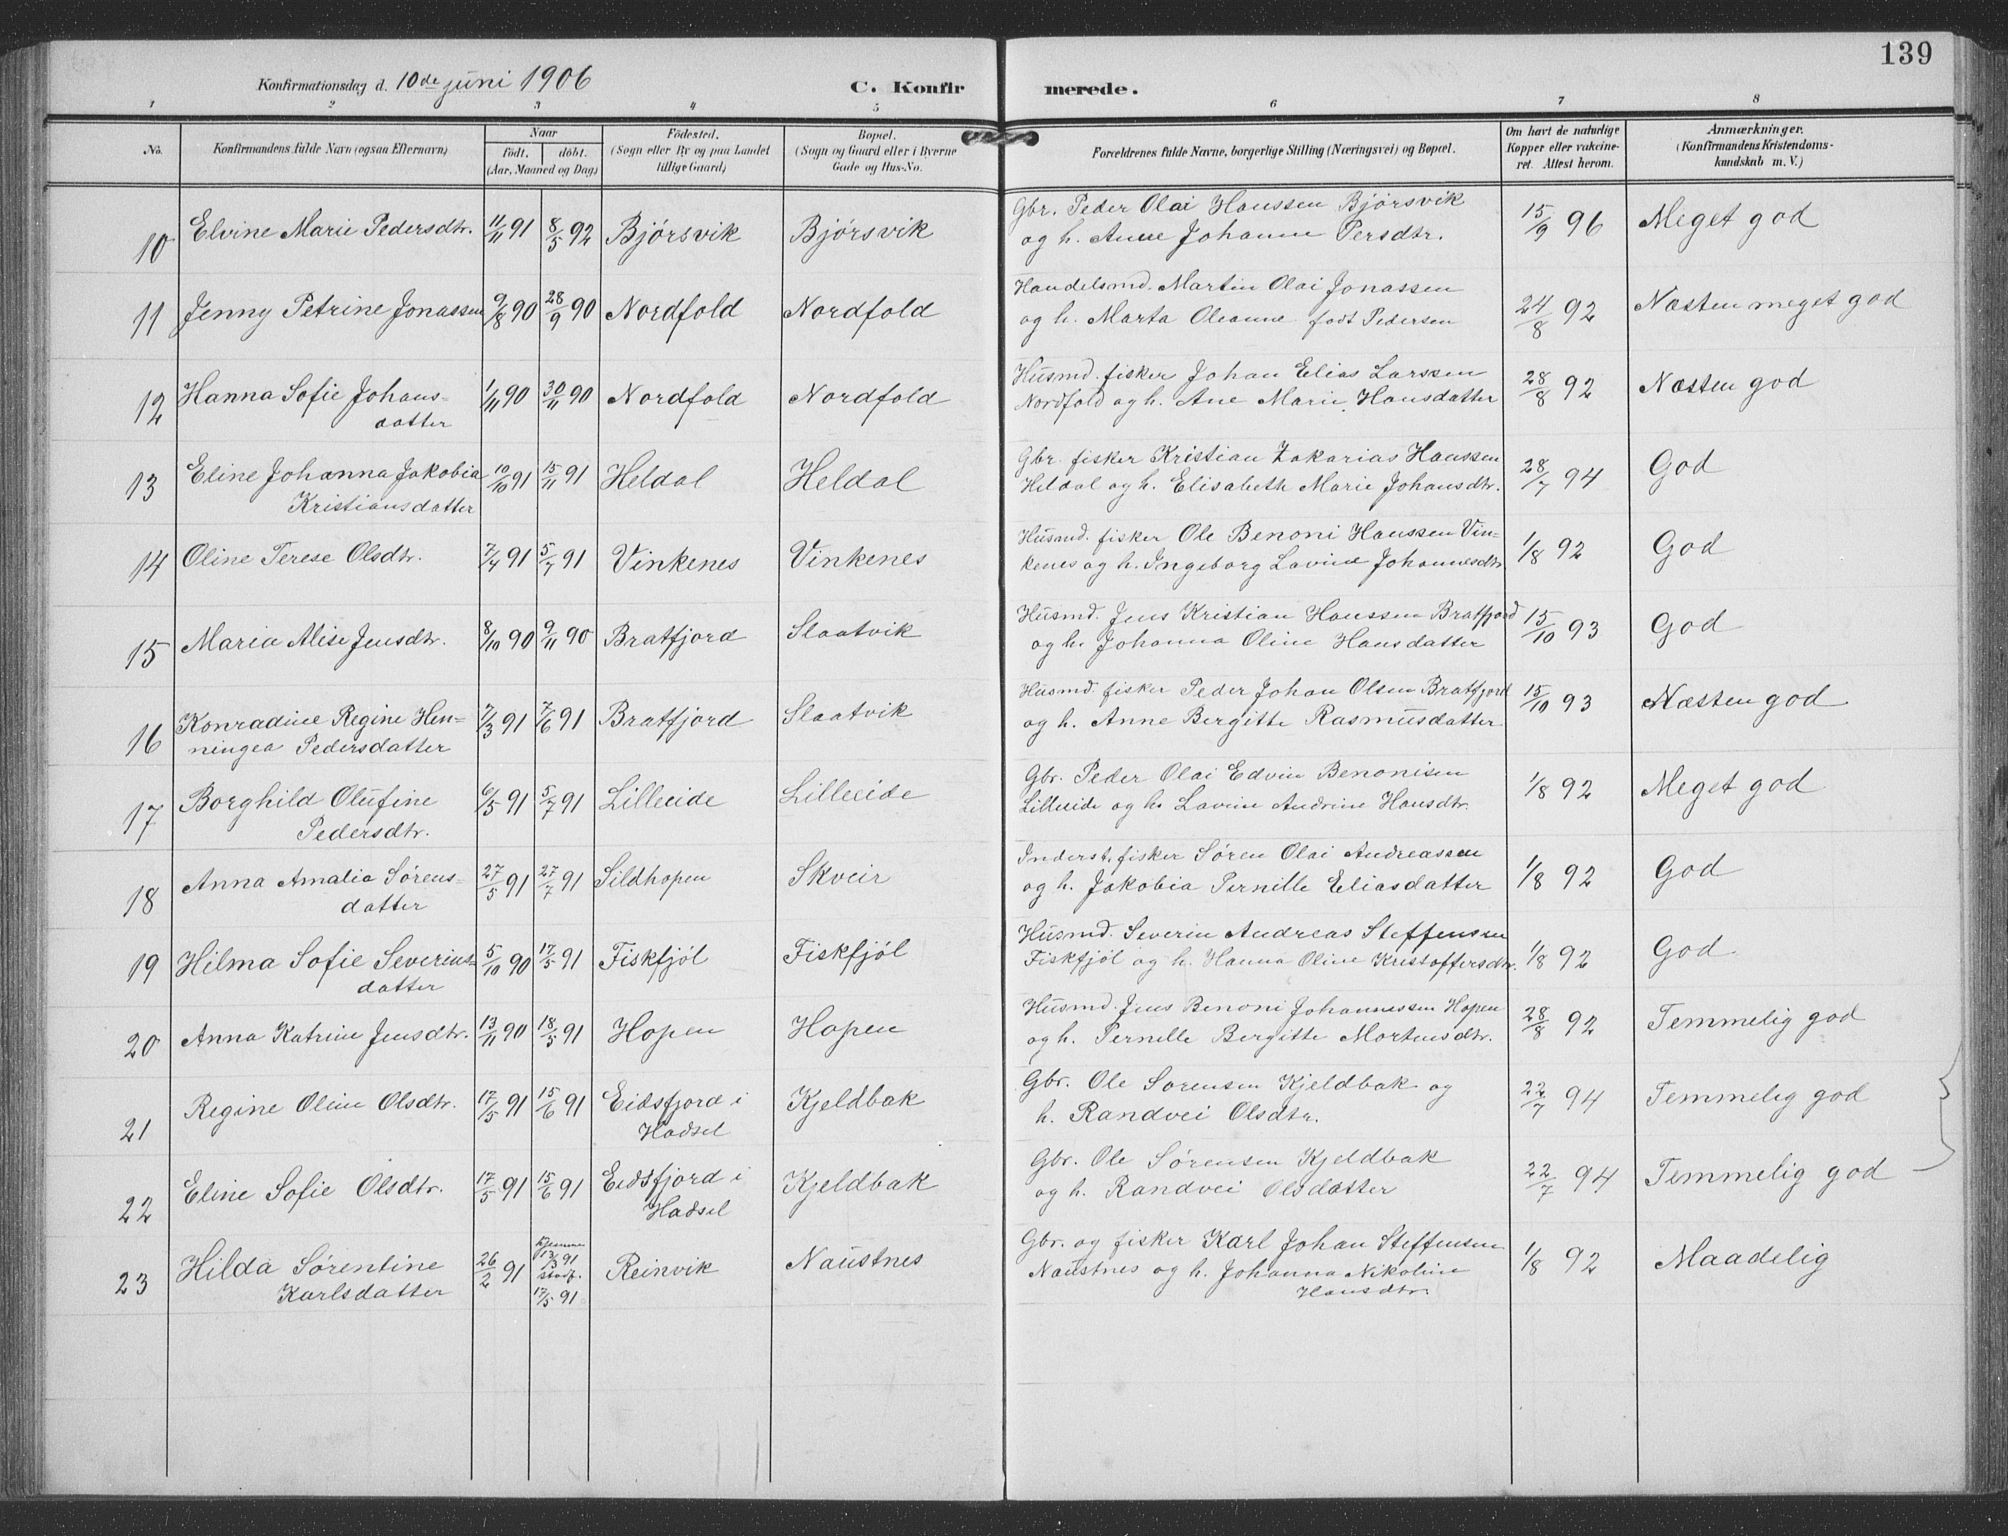 139
Konfirmationsdag d. 10de juni 1906 C. Konfirmerede.
1 2 3 4 5 6 7 8
No. Konfirmandens fulde Navn (ogsaa Efternavn) Naar født. døbt. (Aar, Maaned og Dag) Fødested. (Sogn eller By og paa Landet tillige Gaard) Bopæl. (Sogn og Gaard eller i Byerne Gade og Hus-No. Forældrenes fulde Navne, borgerlige Stilling (Næringsvei) og Bopæl. Om havt de naturlige Kopper eller vakcineret. Attest herom. Anmærkninger. (Konfirmandens Kristendomskundskab m. V.)
10 Elvine Marie Pedersdtr. 11/11 91 8/5 92 Bjørsvik Bjørsvik Gbr. Peder Olai Hanssen Bjørsvik 15/9 96 Meget god
og h. Anne Johanne Persdtr.
11 Jenny Petrine Jonassen 9/8 90 28/9 90 Nordfold Nordfold Handelsmd. Martin Olai Jonassen 24/8 92 Næsten meget god
og h. Marta Oleanne født Pedersen
12 Hanna Sofie Johans- 1/11 90 30/11 90 Nordfold Nordfold Husmd. fisker Johan Elias Larssen 28/8 92 Næsten god
datter Nordfold og h. Ane Marie Hansdatter
13 Eline Johanna Jakobia 10/10 91 15/11 91 Heldal Heldal Gbr. fisker Kristian Zakarias Hanssen 28/7 94 God
Kristiansdatter Heldal og h. Elisabeth Marie Johansdtr.
14 Oline Terese Olsdtr. 7/4 91 5/7 91 Vinkenes Vinkenes Husmd. fisker Ole Benoni Hanssen Vin- 1/8 92 God
kenes og h. Ingeborg Lavine Johannesdtr
15 Maria Alise Jensdtr. 8/10 90 9/11 90 Bratfjord Slaatvik Husmd. Jens Kristian Hanssen Bratfjord 15/10 93 God
og h. Johanna Oline Hansdatter
16 Konradine Regine Hen- 7/3 91 7/6 91 Bratfjord Slaatvik Husmd. fisker Peder Johan Olsen Bratfjord 15/10 93 Næsten god
ningea Pedersdatter og h. Anne Bergitte Rasmusdatter
17 Borghild Olufine 6/5 91 5/7 91 Lilleeide Lilleeide Gbr. Peder Olai Edvin Benonisen 1/8 92 Meget god
Pedersdtr. Lilleeide og h. Lavine Andrine Hansdtr.
18 Anna Amalia Sørens- 27/5 91 27/7 91 Sildhopen Skveir Inderst, fisker Søren Olai Andreassen 1/8 92 God
datter og h. Jakobia Pernille Eliasdatter
19 Hilma Sofie Severins- 5/10 90 17/5 91 Fiskfjøl Fiskfjøl Husmd. Severin Andreas Steffensen 1/8 92 God
datter Fiskfjøl og h. Hanna Oline Kristoffersdtr.
20 Anna Katrine Jensdtr. 13/11 90 18/5 91 Hopen Hopen Husmd. Jens Benoni Johannessen Hopen 28/8 92 Temmelig god
og h. Pernelle Bergitte Mortensdtr.
21 Regine Oline Olsdtr. 17/5 91 15/6 91 Eidsfjord i Kjeldbak Gbr. Ole Sørensen Kjeldbak og 22/7 94 Temmelig god
Hadsel h. Randvei Olsdtr.
22 Eline Sofie Olsdtr. 17/5 91 15/6 91 Eidsfjord i Kjeldbak Gbr. Ole Sørensen Kjeldbak 22/7 94 Temmelig god
Hadsel og h. Randvei Olsdatter
23 Hilda Sørentine 26/2 91 hjemme 13/3 91 Reinvik Naustnes Gbr. og fisker Karl Johan Steffensen 1/8 92 Maadelig
Karlsdatter stadf. 17/5 91 Naustnes og h. Johanna Nikoline
Hansdtr.